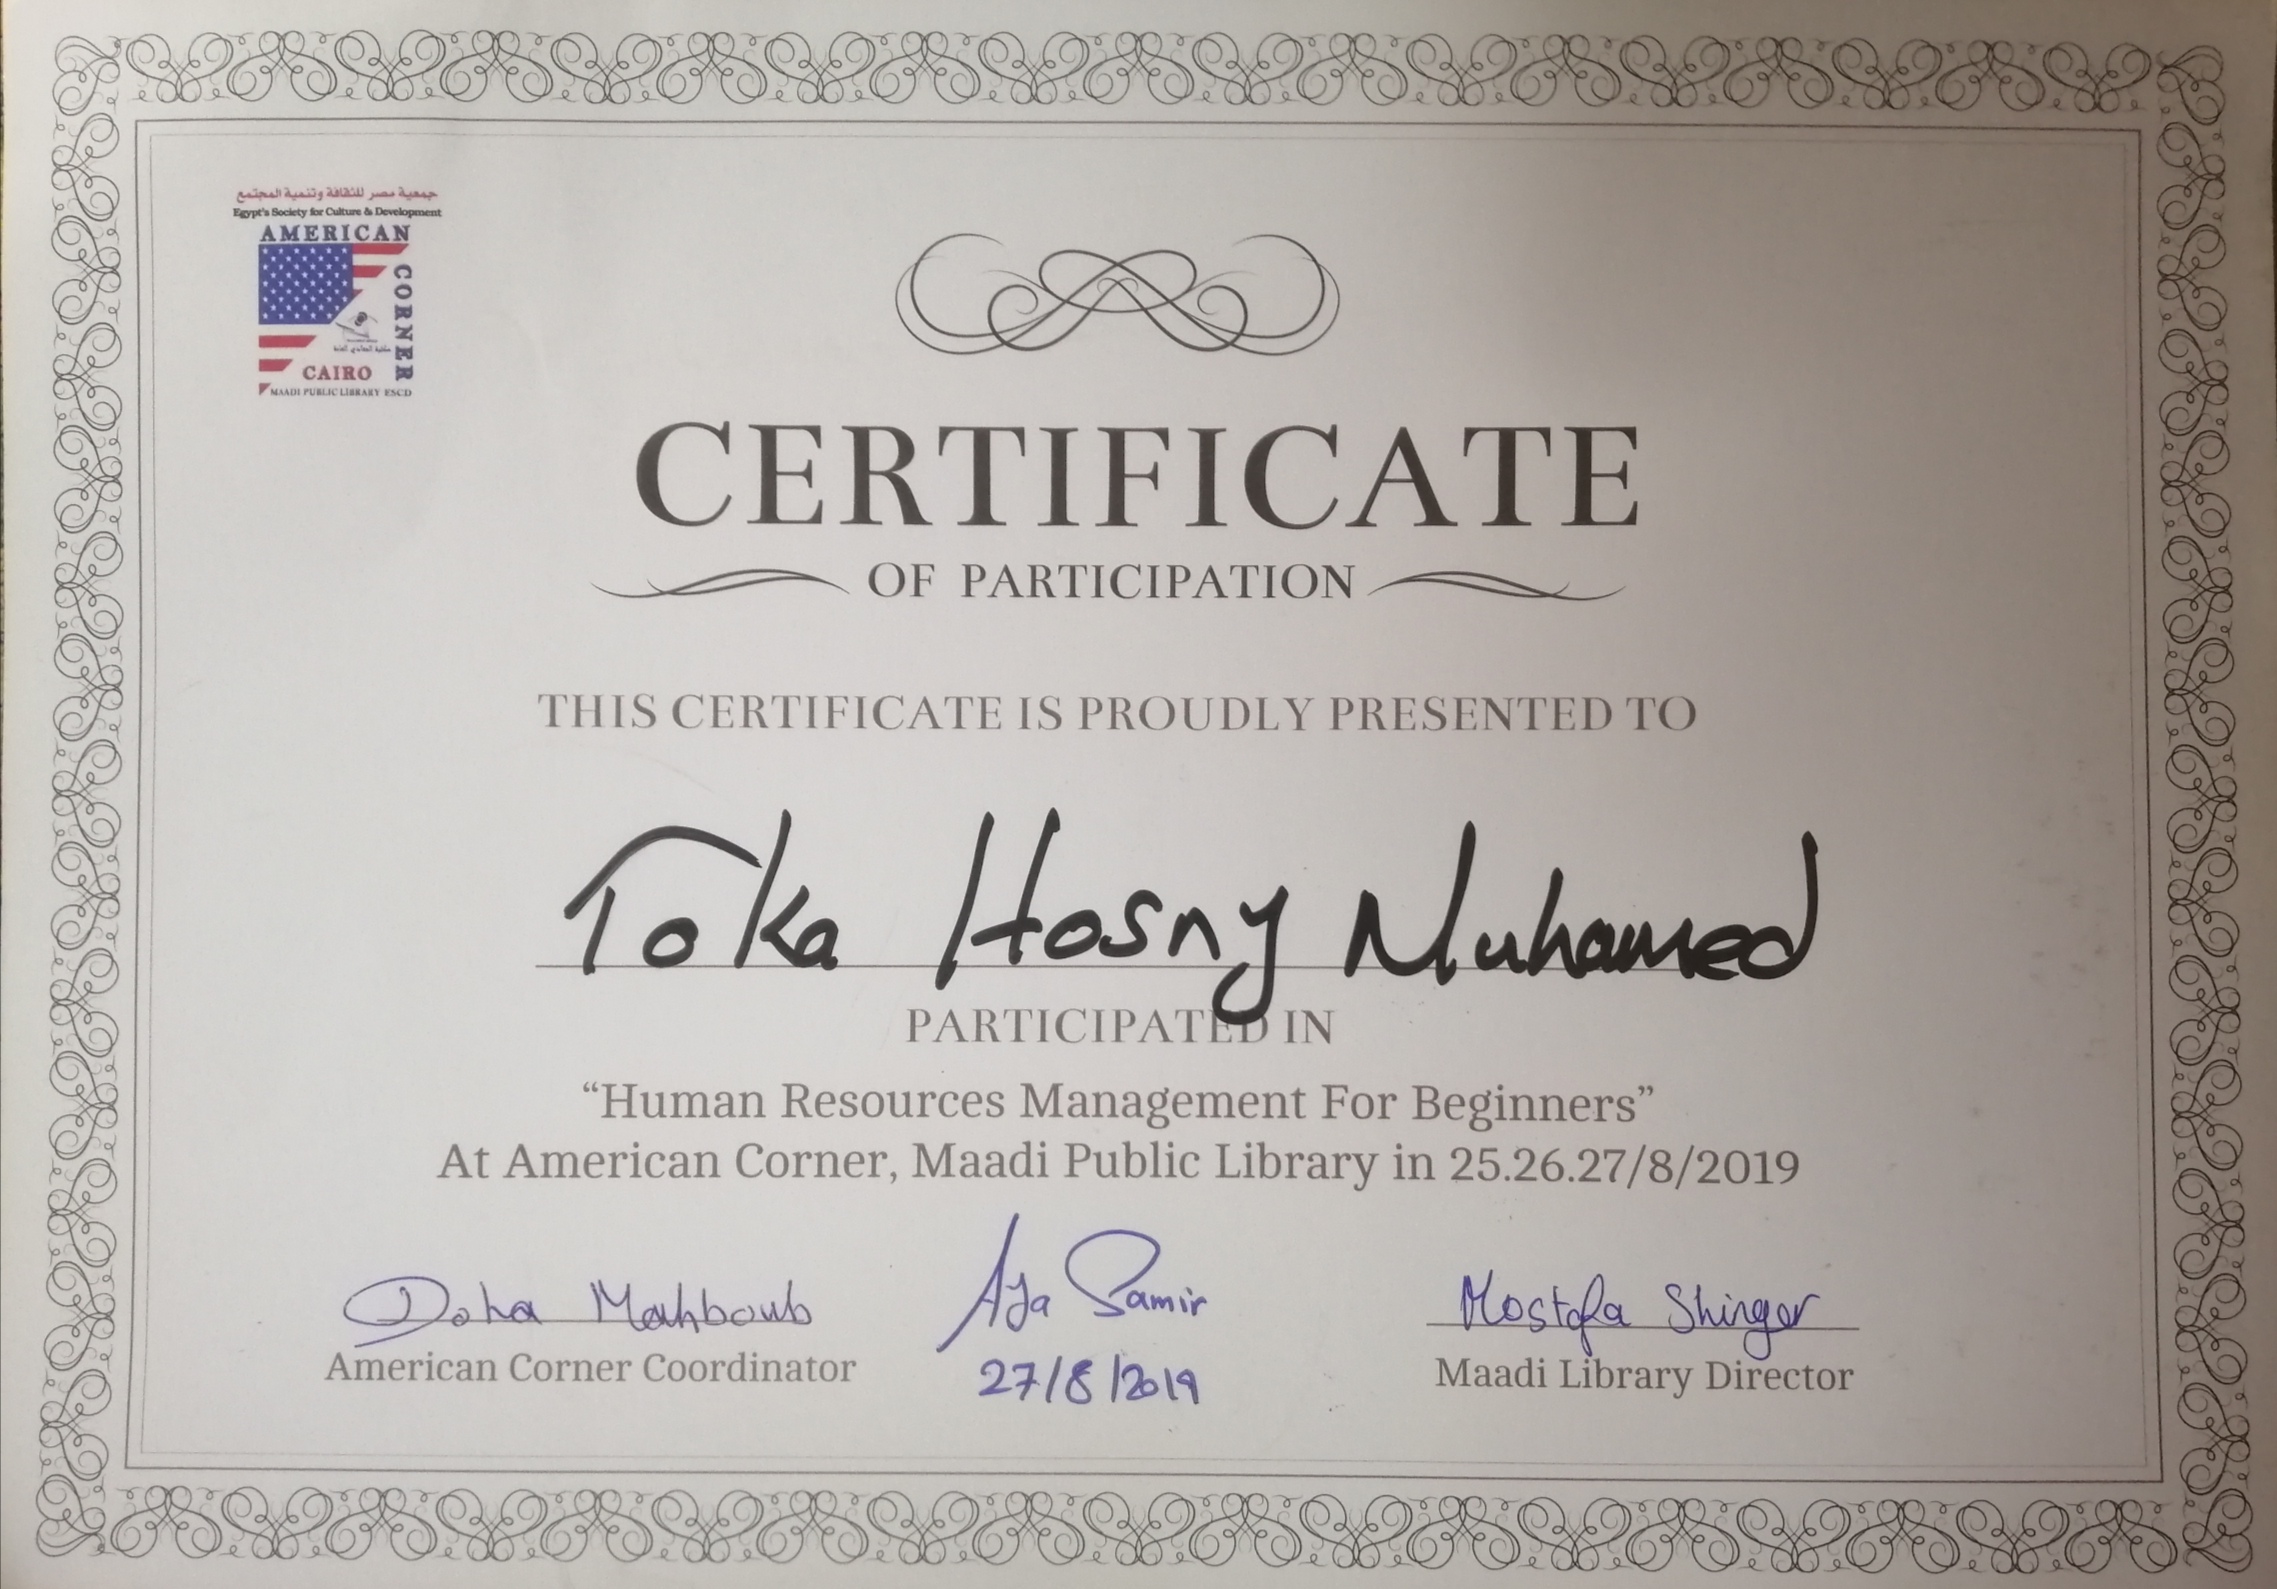 جمعية مصر للثقافة وتنمية المجتمع
Egypt's Society for Culture & Development
AMERICAN
CORNER
مكتبة المعادي العامة
CAIRO
MAADI PUBLIC LIBRARY ESCD
CERTIFICATE
OF PARTICIPATION
THIS CERTIFICATE IS PROUDLY PRESENTED TO
Toka Hosny Muhamed
PARTICIPATED IN
“Human Resources Management For Beginners”
At American Corner, Maadi Public Library in 25.26.27/8/2019
Doha Mahboub Aya Samir Mostafa Shinger
American Corner Coordinator 27/8/2019 Maadi Library Director